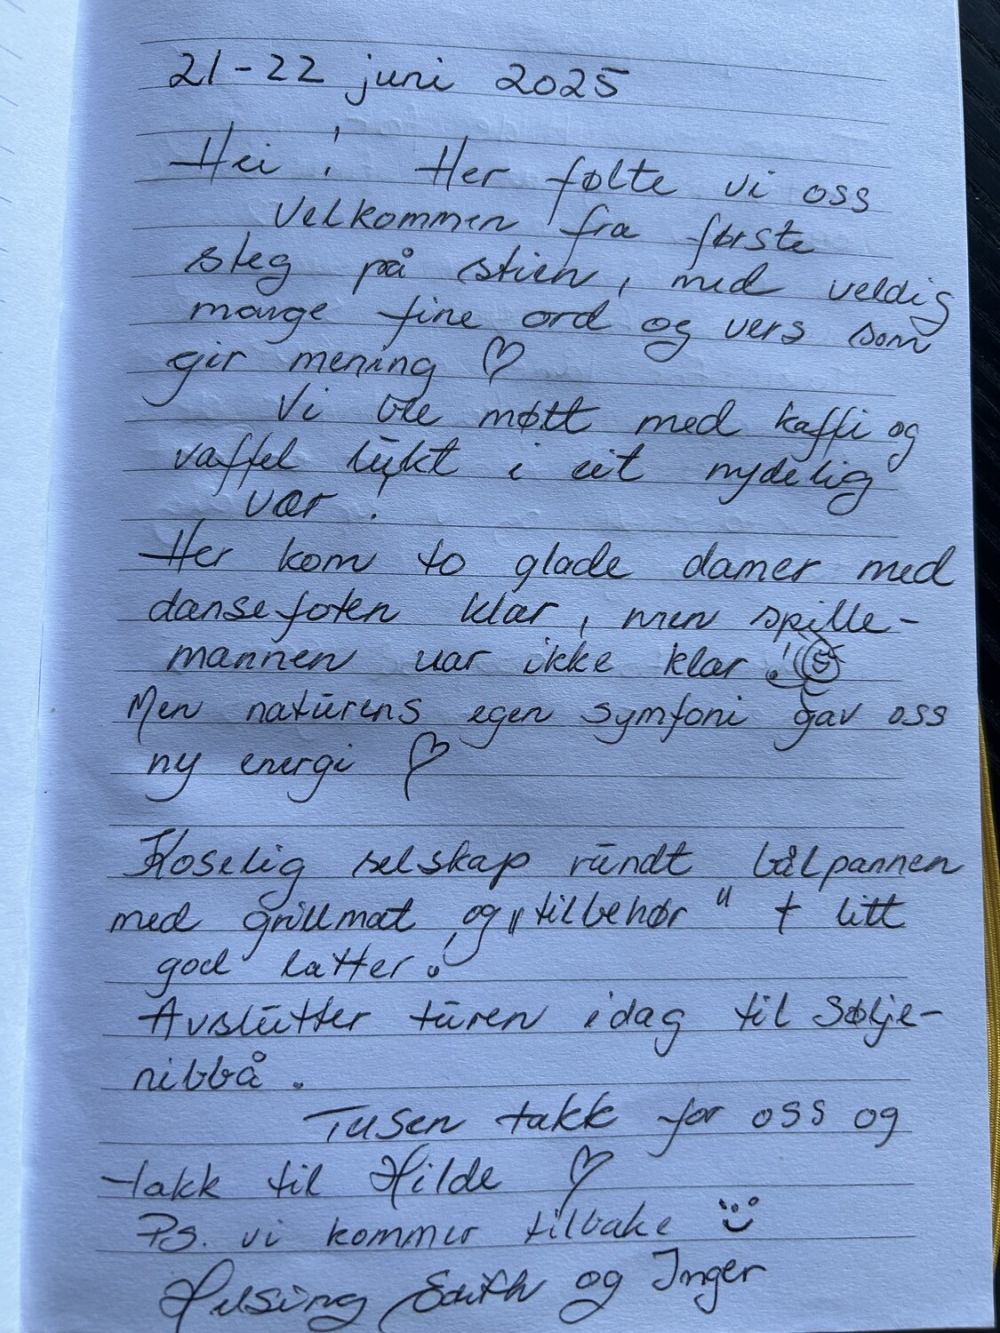 21-22 juni 2025
Hei! Her følte vi oss
Velkommen fra første
steg på stien, med veldig
mange fine ord og vers som
gir mening ♡
Vi ble møtt med kaffi og
vaffel lukt i eit nydelig
vær!
Her kom to glade damer med
dansefoten klar, men spille-
mannen var ikke klar!
Men naturens egen symfoni gav oss
ny energi ♡
Koselig selskap rundt bålpannen
med grillmat og „tilbehør" + litt
god latter.
Avslutter turen idag til Sølje-
nibbå.
Tusen takk for oss og
takk til Hilde ♡
Ps. vi kommer tilbake
Helsing Edith og Inger